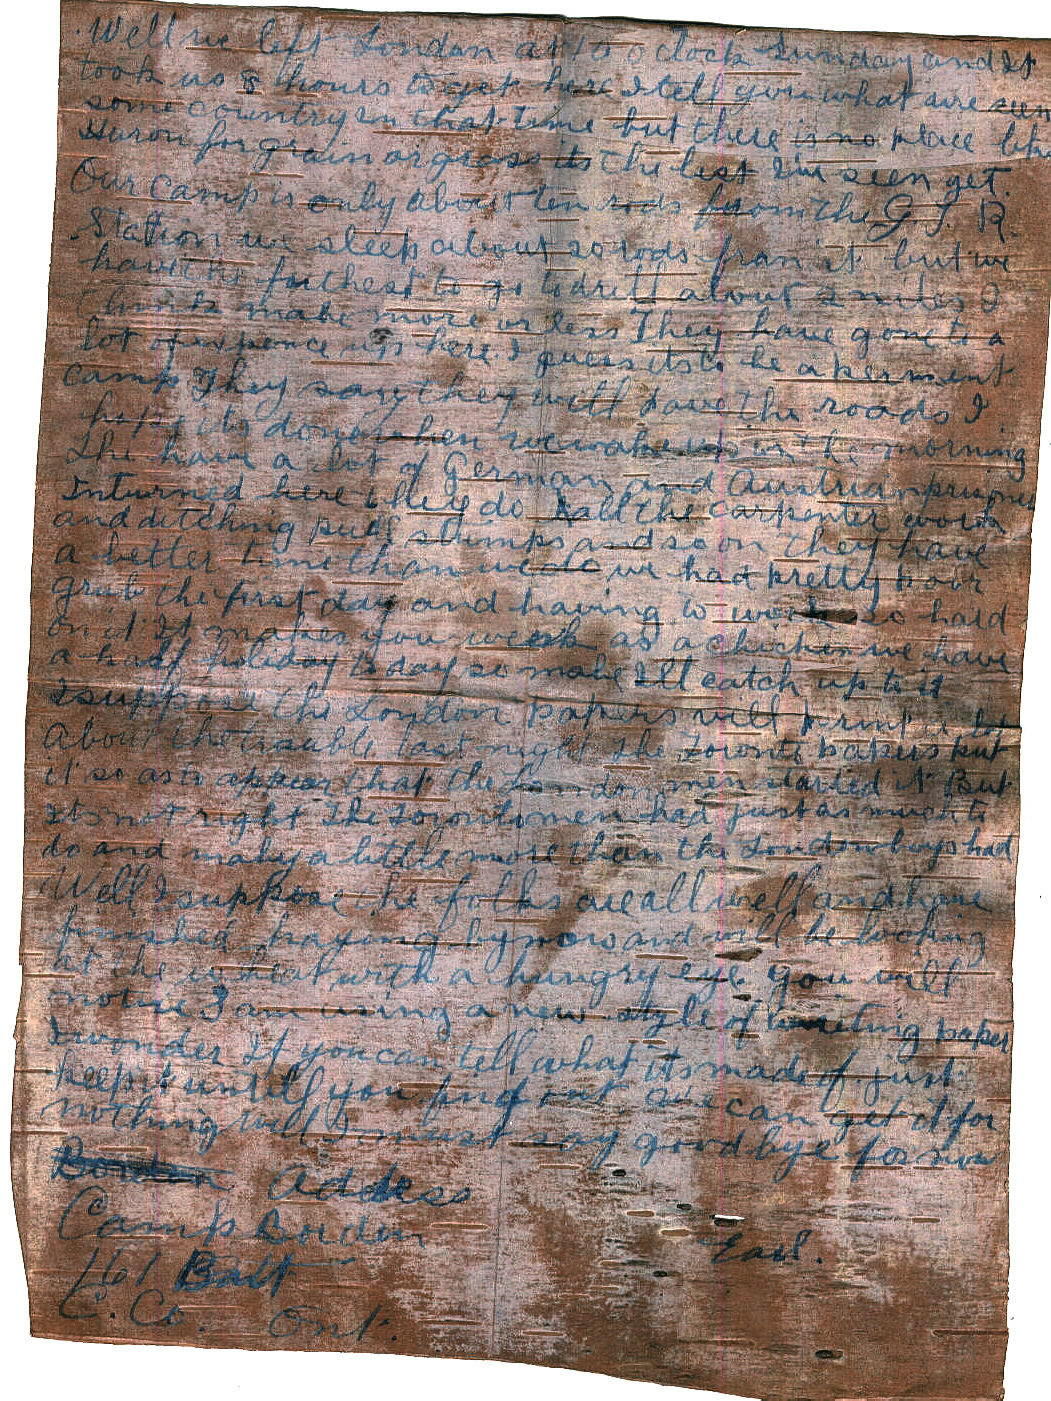 Well we left London at 10 o clock Sunday and it
took us 8 hours to get here I tell you what we seen
some country in that time but there is no place like
Huron for grain or grass its the best I've seen yet.
Our camp is only about ten rods from the G. T. R.
Station we sleep about 50 rods from it but we
have the farthest to go to drill about 2 miles I
think make more or less They have gone to a
lot of expence up here. I guess its to be a perment
camp They say they will pave the roads I
hope its done when we wake up in the morning
The have a lot of German and Austrian prisoners
inturned here they do all the carpenter work
and ditching pull stumps and so on they have
a better time than we do we had pretty poor
grub the first day and having to work so hard
on it it makes you weak as a chicken we have
a half holiday today so make Ill catch up to it
I suppose the London papers will print a lot
about the trouble last night the Toronto papers put
it so as to appear that the London men started it But
its not right The Toronto men had just as much to
do and maby a little more than the London boys had
Well I suppose the folks are all well and have
finished haying by now and will be looking
at the wheat with a hungry eye. You will
notice I am using a new style of writing paper
I wonder if you can tell what its made of. just
keep it untill you find out we can get it for
nothing Well I must say good bye for now
Borden Address
Camp Borden
Earl.
161 Batt
C. Co. Ont.